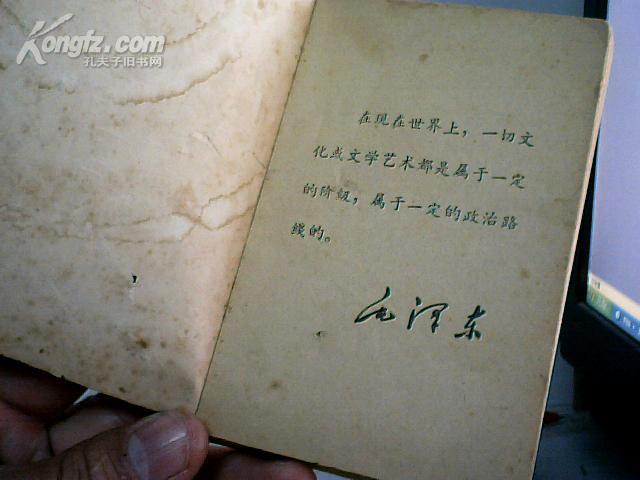 Kongfz.com
孔夫子旧书网
在现在世界上，一切文
化或文学艺术都是属于一定
的阶级，属于一定的政治路
线的。
毛泽东